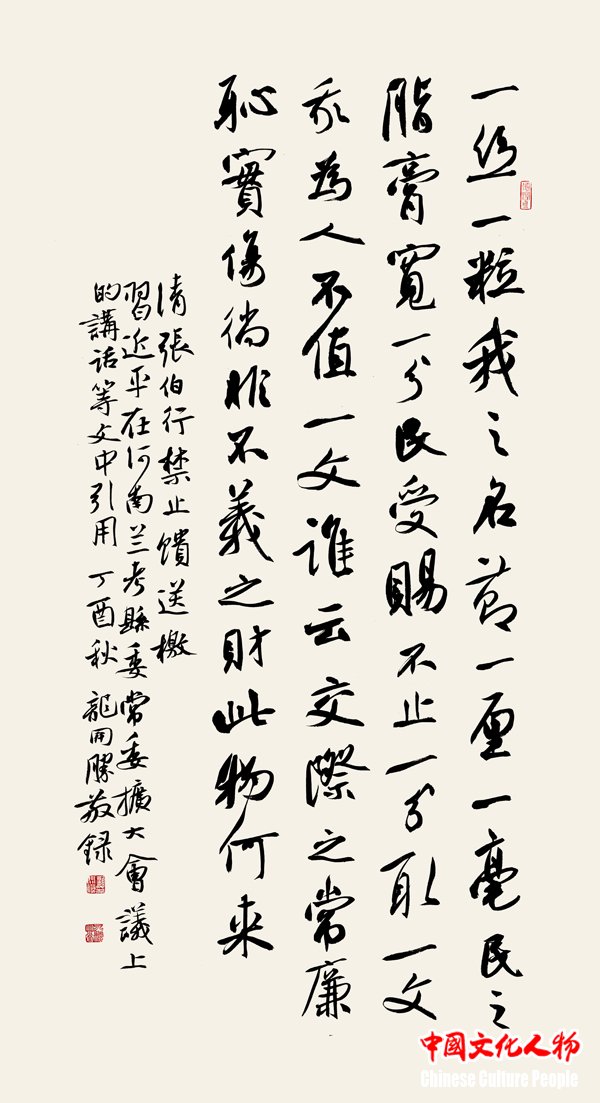 一絲一粒我之名節一厘一毫民之
脂膏寬一分民受賜不止一分取一文
我為人不值一文誰云交際之常廉
恥實傷徜非不義之財此物何来
清張伯行禁止饋送檄
習近平在河南兰考縣委常委擴大會議上
的講话等文中引用丁酉秋龍開勝敬録
中國文化人物
Chinese Culture People